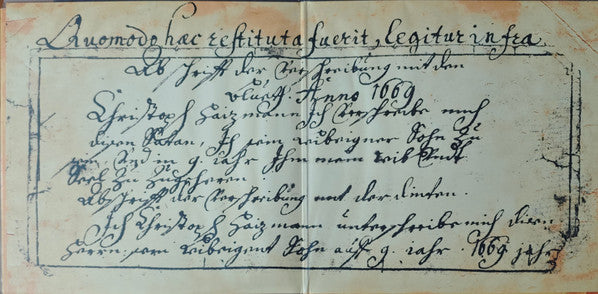 Quomodo hæc restituta fuerit, legitur infra.
Abschrifft der Verschreibung mit den
bluett. Anno 1669
Christoph Haizmann Ich Verschreibe mich
disen Satan, Ich sein leibeigner Sohn Zu
sein, Vnd in 9. iahr Ihm mein leib Vndt
Seel Zu Zugeheren.
Abschrifft der Verschreibung mit der dinten.
Ich Christoph Haizmann unterschreibe mich disen
Herrn sein leibeigent Sohn auff 9. iahr. 1669 jahr